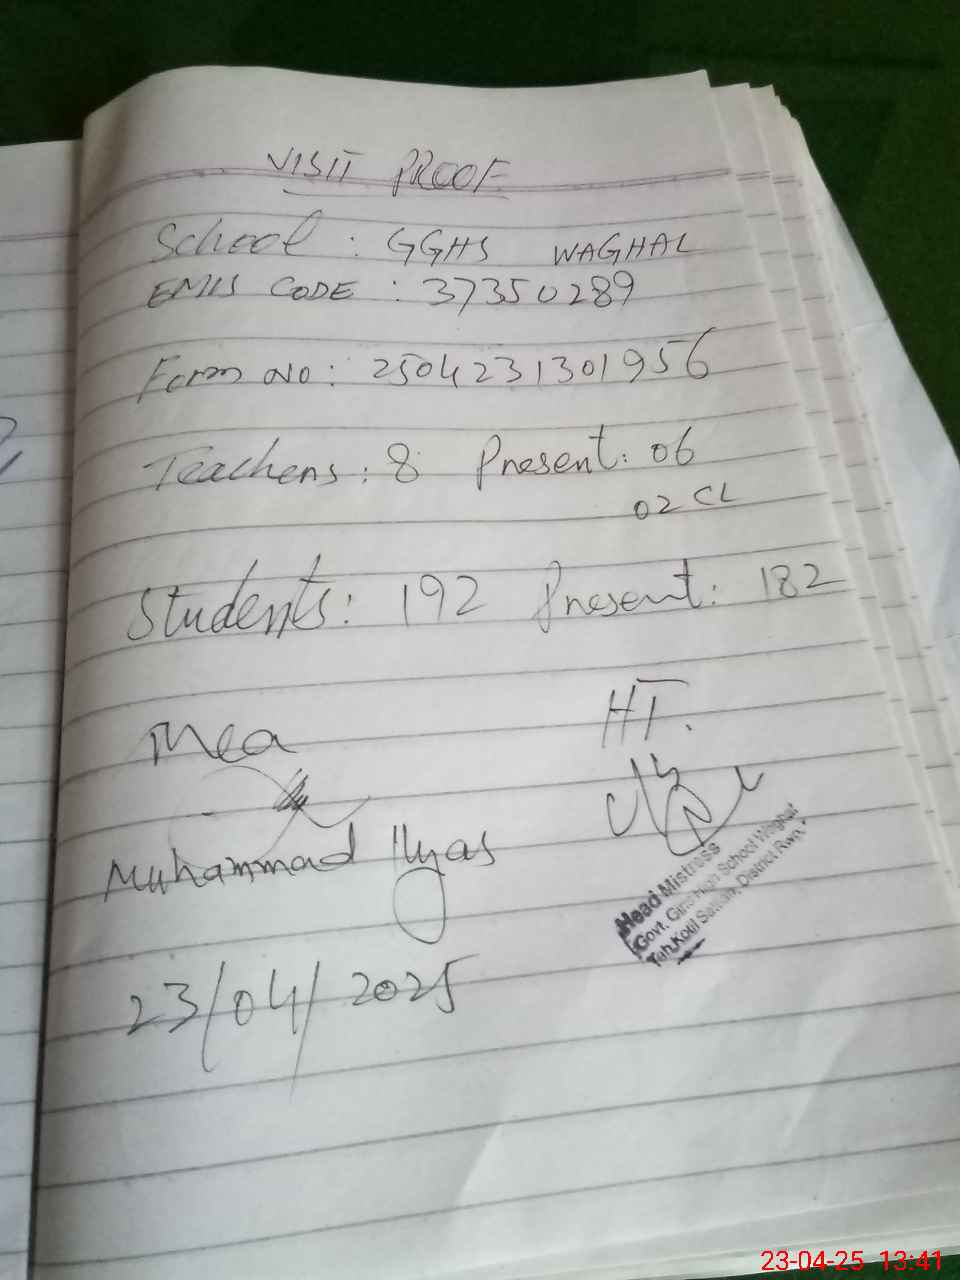 VISIT PROOF
School : GGHS WAGHAL
EMIS CODE : 37350289
Form No : 2504231301956
Teachers : 8 Present : 06
02 CL
Students : 192 Present : 182
Mea
HT.
Muhammad Ilyas
Head Mistress
Govt. Girls High School Waghal
Teh. Kotli Sattian, District Rwp.
23/04/2025
23-04-25 13:41